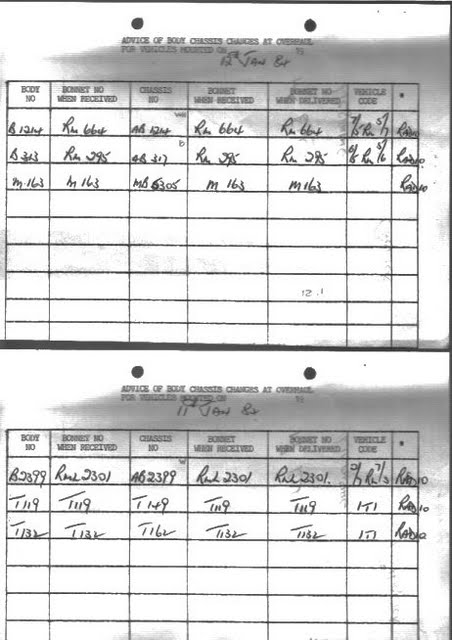 ADVICE OF BODY CHASSIS CHANGES AT OVERHAUL
FOR VEHICLES MOUNTED ON 19
12th JAN 84
BODY NO BONNET NO WHEN RECEIVED CHASSIS NO BONNET WHEN RECEIVED BONNET NO WHEN DELIVERED VEHICLE CODE *
B1214 RM 664 AB 1214 RM 664 RM 664 7/5 RM 5/7 RADIO
B 313 RM 295 AB 317 RM 295 RM 295 6/5 RM 5/6 RADIO
M 163 M 163 MB 5305 M 163 M163 RADIO
12.1
ADVICE OF BODY CHASSIS CHANGES AT OVERHAUL
FOR VEHICLES MOUNTED ON 19
11th JAN 84
BODY NO BONNET NO WHEN RECEIVED CHASSIS NO BONNET WHEN RECEIVED BONNET NO WHEN DELIVERED VEHICLE CODE *
B2399 RML 2301 AB2399 RML 2301 RML 2301. RML 7/3 RADIO
T119 T119 T149 T119 T119 1T1 RADIO
T132 T132 T162 T132 T132 1T1 RADIO